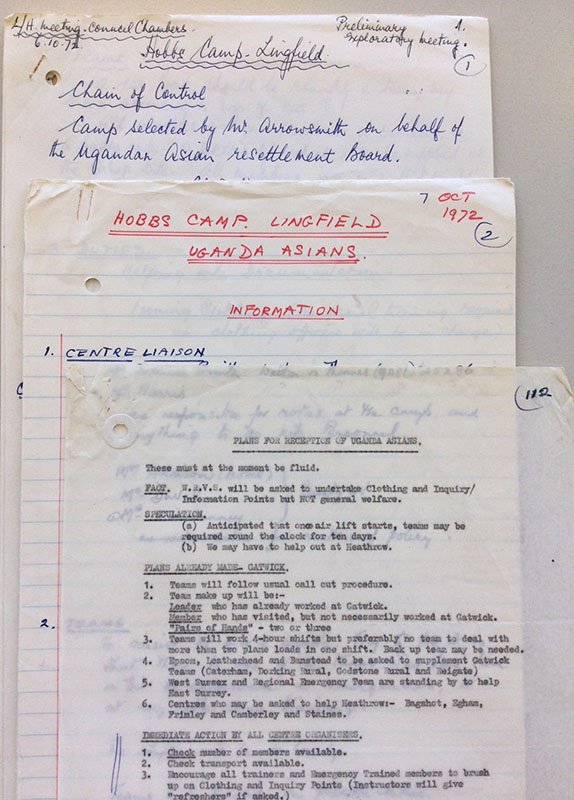 L/H. Meeting. Council Chambers.
6.10.72.
Preliminary 1.
exploratory meeting.
Hobbs Camp. Lingfield
1
Chain of Control
Camp selected by Mr. Arrowsmith on behalf of
the Ugandan Asian resettlement Board.
7 OCT
1972
2
HOBBS CAMP. LINGFIELD
UGANDA ASIANS.
INFORMATION
1. CENTRE LIAISON
2.
112
PLANS FOR RECEPTION OF UGANDA ASIANS.
These must at the moment be fluid.
FACT. W.R.V.S. will be asked to undertake Clothing and Inquiry/
Information Points but NOT general welfare.
SPECULATION.
(a) Anticipated that once air lift starts, teams may be
required round the clock for ten days.
(b) We may have to help out at Heathrow.
PLANS ALREADY MADE- GATWICK.
1. Teams will follow usual call out procedure.
2. Team make up will be:-
Leader who has already worked at Gatwick.
Member who has visited, but not necessarily worked at Gatwick.
"Pairs of Hands" - two or three
3. Teams will work 4-hour shifts but preferably no team to deal with
more than two plane loads in one shift. Back up team may be needed.
4. Epsom, Leatherhead and Banstead to be asked to supplement Gatwick
Teams (Caterham, Dorking Rural, Godstone Rural and Reigate)
5. West Sussex and Regional Emergency Team are standing by to help
East Surrey.
6. Centres who may be asked to help Heathrow:- Bagshot, Egham,
Frimley and Camberley and Staines.
IMMEDIATE ACTION BY ALL CENTRE ORGANISERS.
1. Check number of members available.
2. Check transport available.
3. Encourage all trainers and Emergency Trained members to brush
up on Clothing and Inquiry Points (Instructors will give
"refreshers" if asked.)